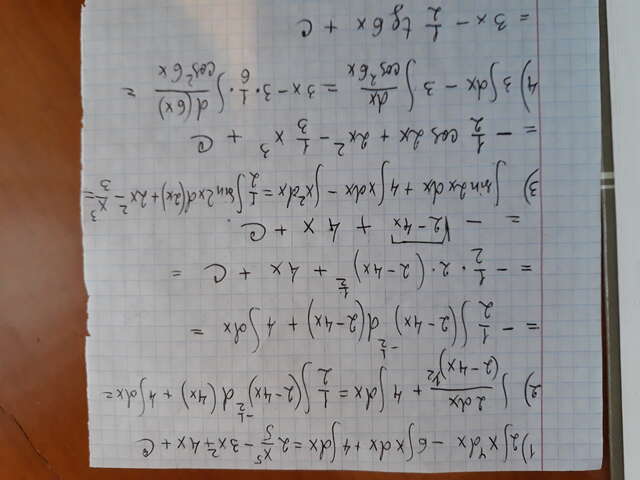 1) 2∫x⁴dx − 6∫xdx + 4∫dx = 2 x⁵/5 − 3x² + 4x + C
2) ∫ 2dx/(2−4x)^1/2 + 4∫dx = 1/2 ∫(2−4x)^−1/2 d(4x) + 4∫dx =
= − 1/2 ∫(2−4x)^−1/2 d(2−4x) + 4∫dx =
= − 1/2 · 2 · (2−4x)^1/2 + 4x + C =
= − √(2−4x) + 4x + C.
3) ∫sin2xdx + 4∫xdx − ∫x²dx = 1/2 ∫sin2xd(2x) + 2x² − x³/3 =
= − 1/2 cos2x + 2x² − 1/3 x³ + C
4) 3∫dx − 3∫ dx/cos²6x = 3x − 3 · 1/6 · ∫ d(6x)/cos²6x =
= 3x − 1/2 tg6x + C